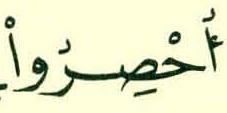 أُحْصِرُواْ